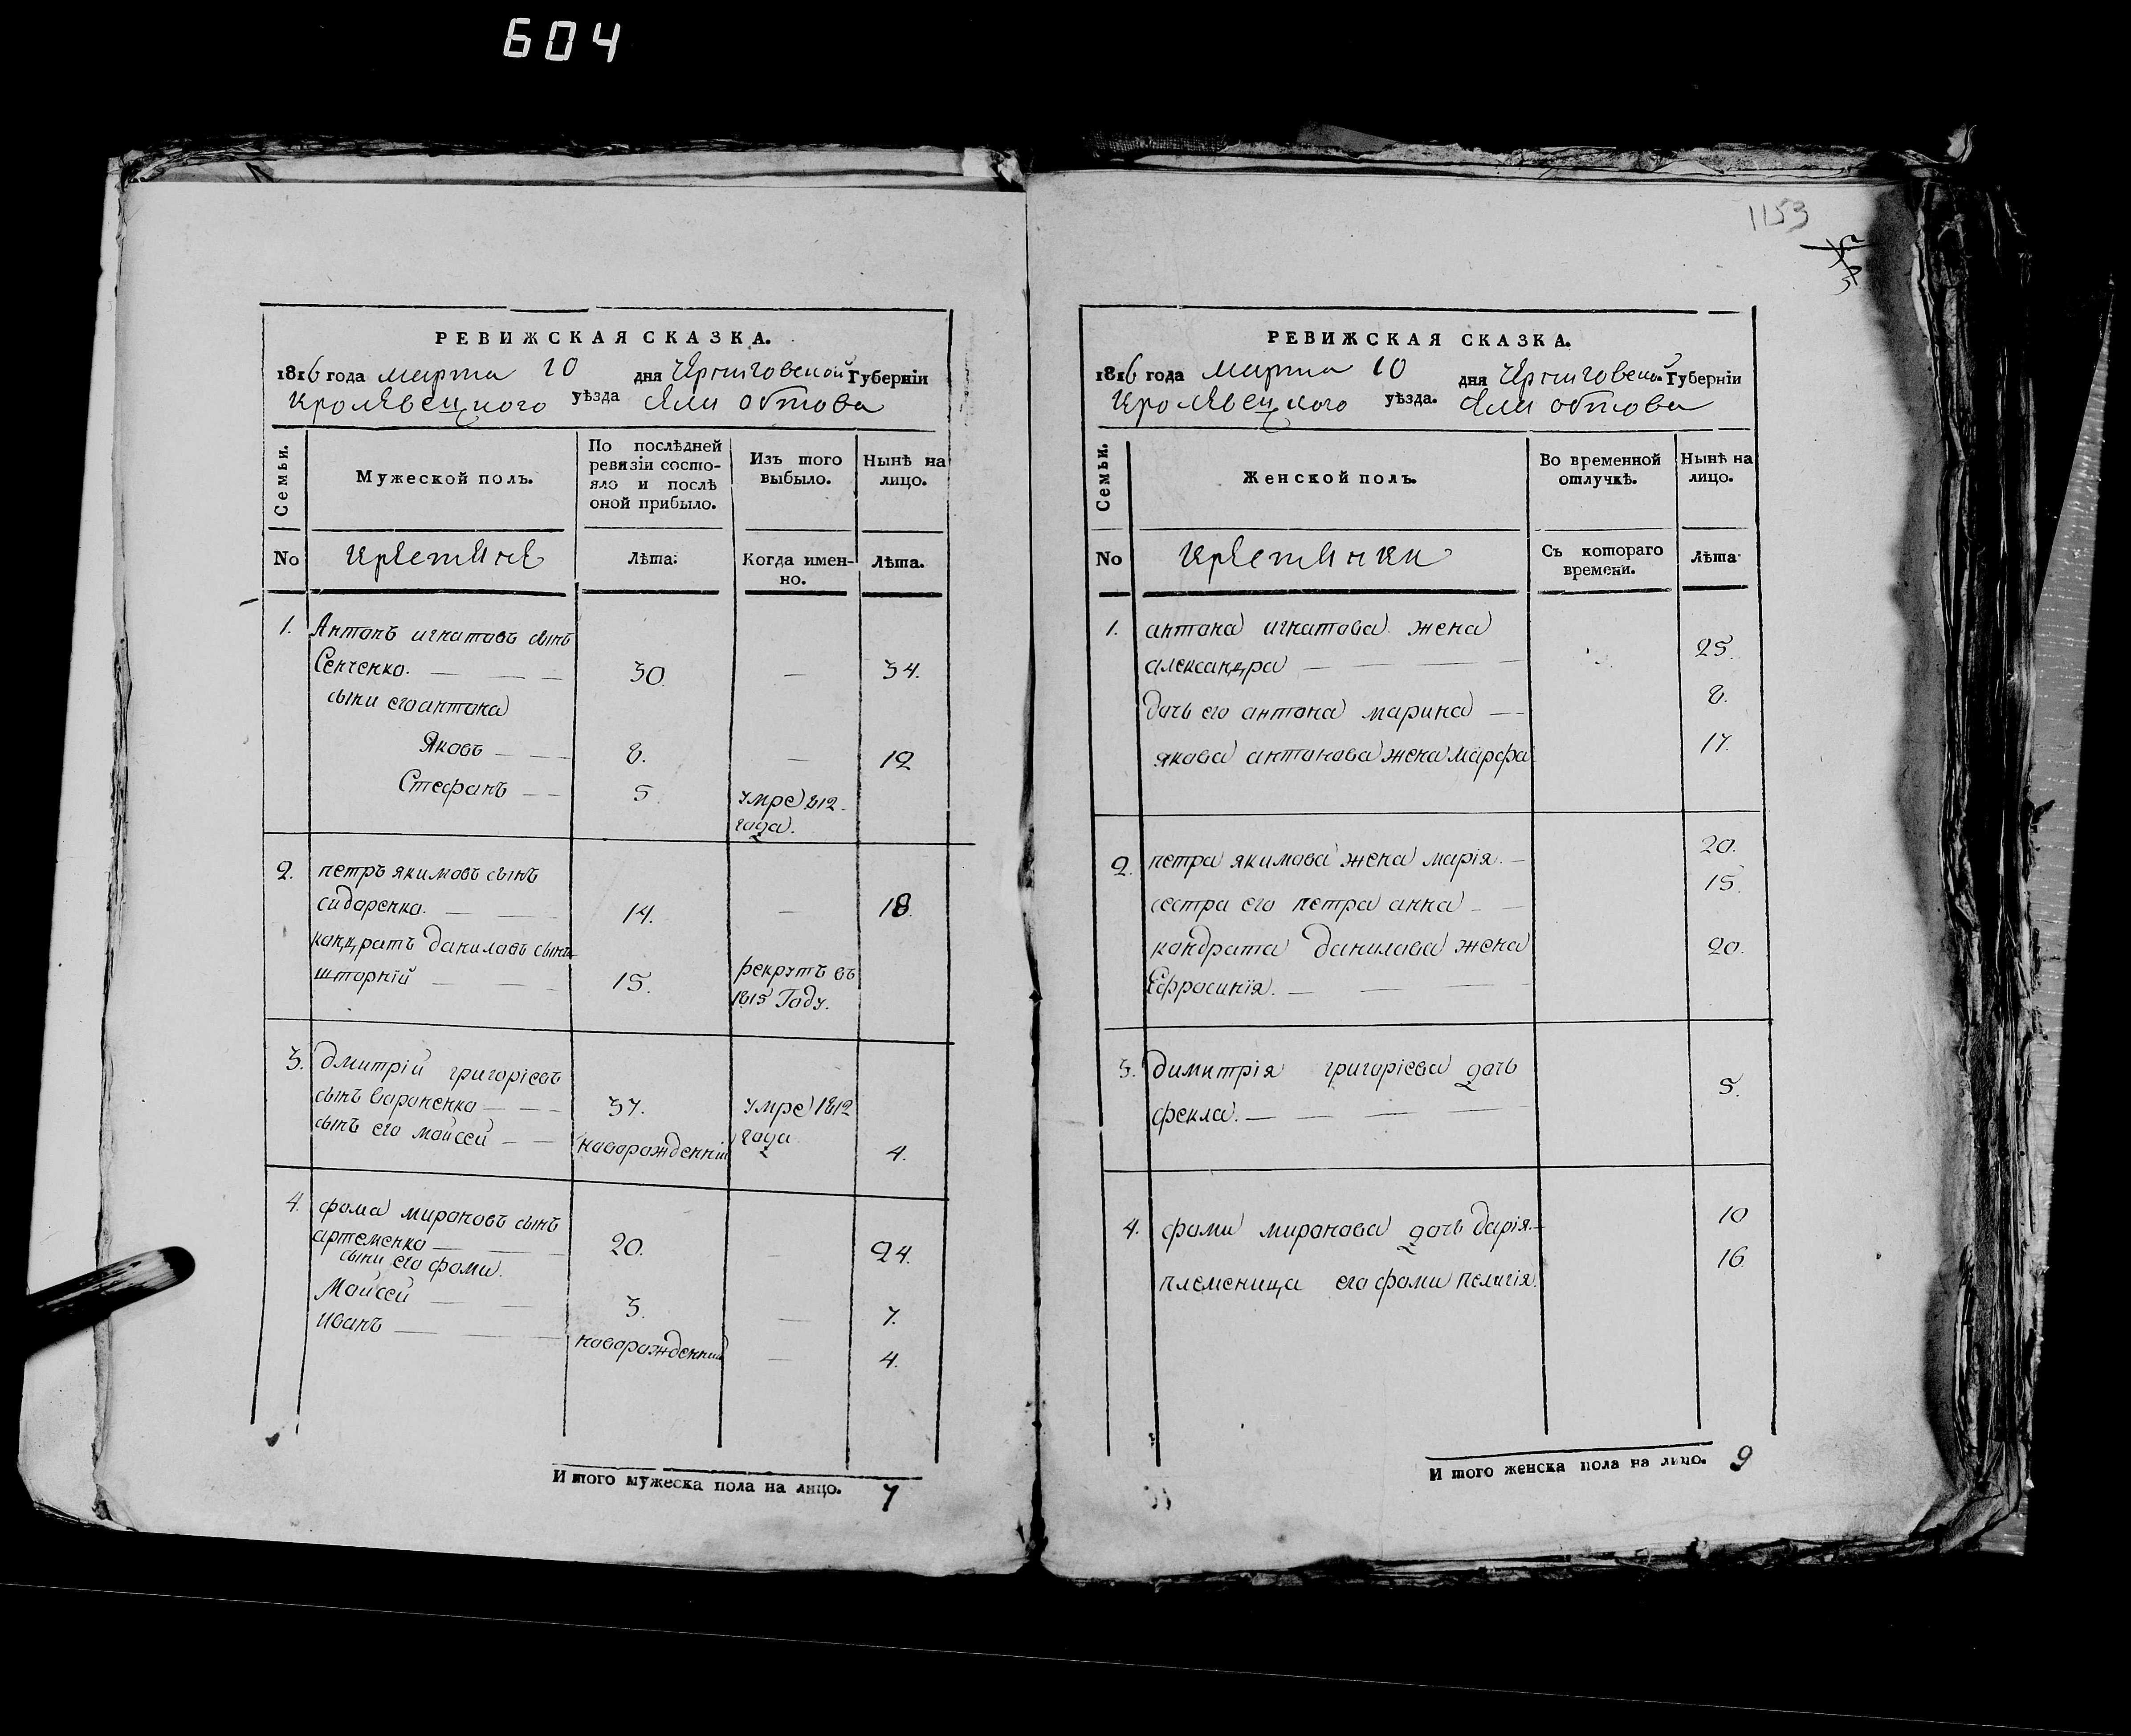 604
1153
РЕВИЖСКАЯ СКАЗКА.
1816 года марта 10 дня Черниговской Губерніи
Кролевецкого уѣзда Сели обтова
Семьи.
Мужеской полъ.
По послѣдней ревизіи состояло и послѣ оной прибыло.
Изъ того выбыло.
Нынѣ на лицо.
No
Крестяне
Лѣта.
Когда именно.
Лѣта.
1. Антонъ игнатовъ сынъ
Сенченко. — — — 30. — 34.
сыни его антона
Яковъ — — 8. — 12
Стефанъ — — 5. умре 812
года.
2. петръ якимовъ сынъ
сидоренко. — — 14. — 18.
кондратъ даниловъ сынъ
шторній — — 15. рекрутъ въ
1815 Году.
3. дмитрій григоріевъ
сынъ вороненко — — 37. умре 1812
сынъ его мойсей — — новорожденній года 4.
4. фома мироновъ сынъ
артеменко — — 20. — 24.
сыни его фоми.
Мойсей — — 3. — 7.
иванъ — — — новорожденний — 4.
И того мужеска пола на лицо. 7
РЕВИЖСКАЯ СКАЗКА.
1816 года марта 10 дня Черниговско. Губерніи
Кролевецкого уѣзда. Сели обтова
Семьи.
Женской полъ.
Во временной отлучкѣ.
Нынѣ на лицо.
No
Крестянки
Съ котораго времени.
Лѣта
1. антона игнатова жена
александра — — — — 25.
дочь его антона марина — 8.
якова антонова жена марфа 17.
2. петра якимова жена марія. — 20.
сестра его петра анна — — 15.
кондрата данилова жена 20.
Ефросинія. — — —
3. димитрія григоріева дочь
фекла. — — — — 5.
4. фоми миронова дочь дарія. — 10
племеница его фоми пелагія. 16
И того женска пола на лицо. 9